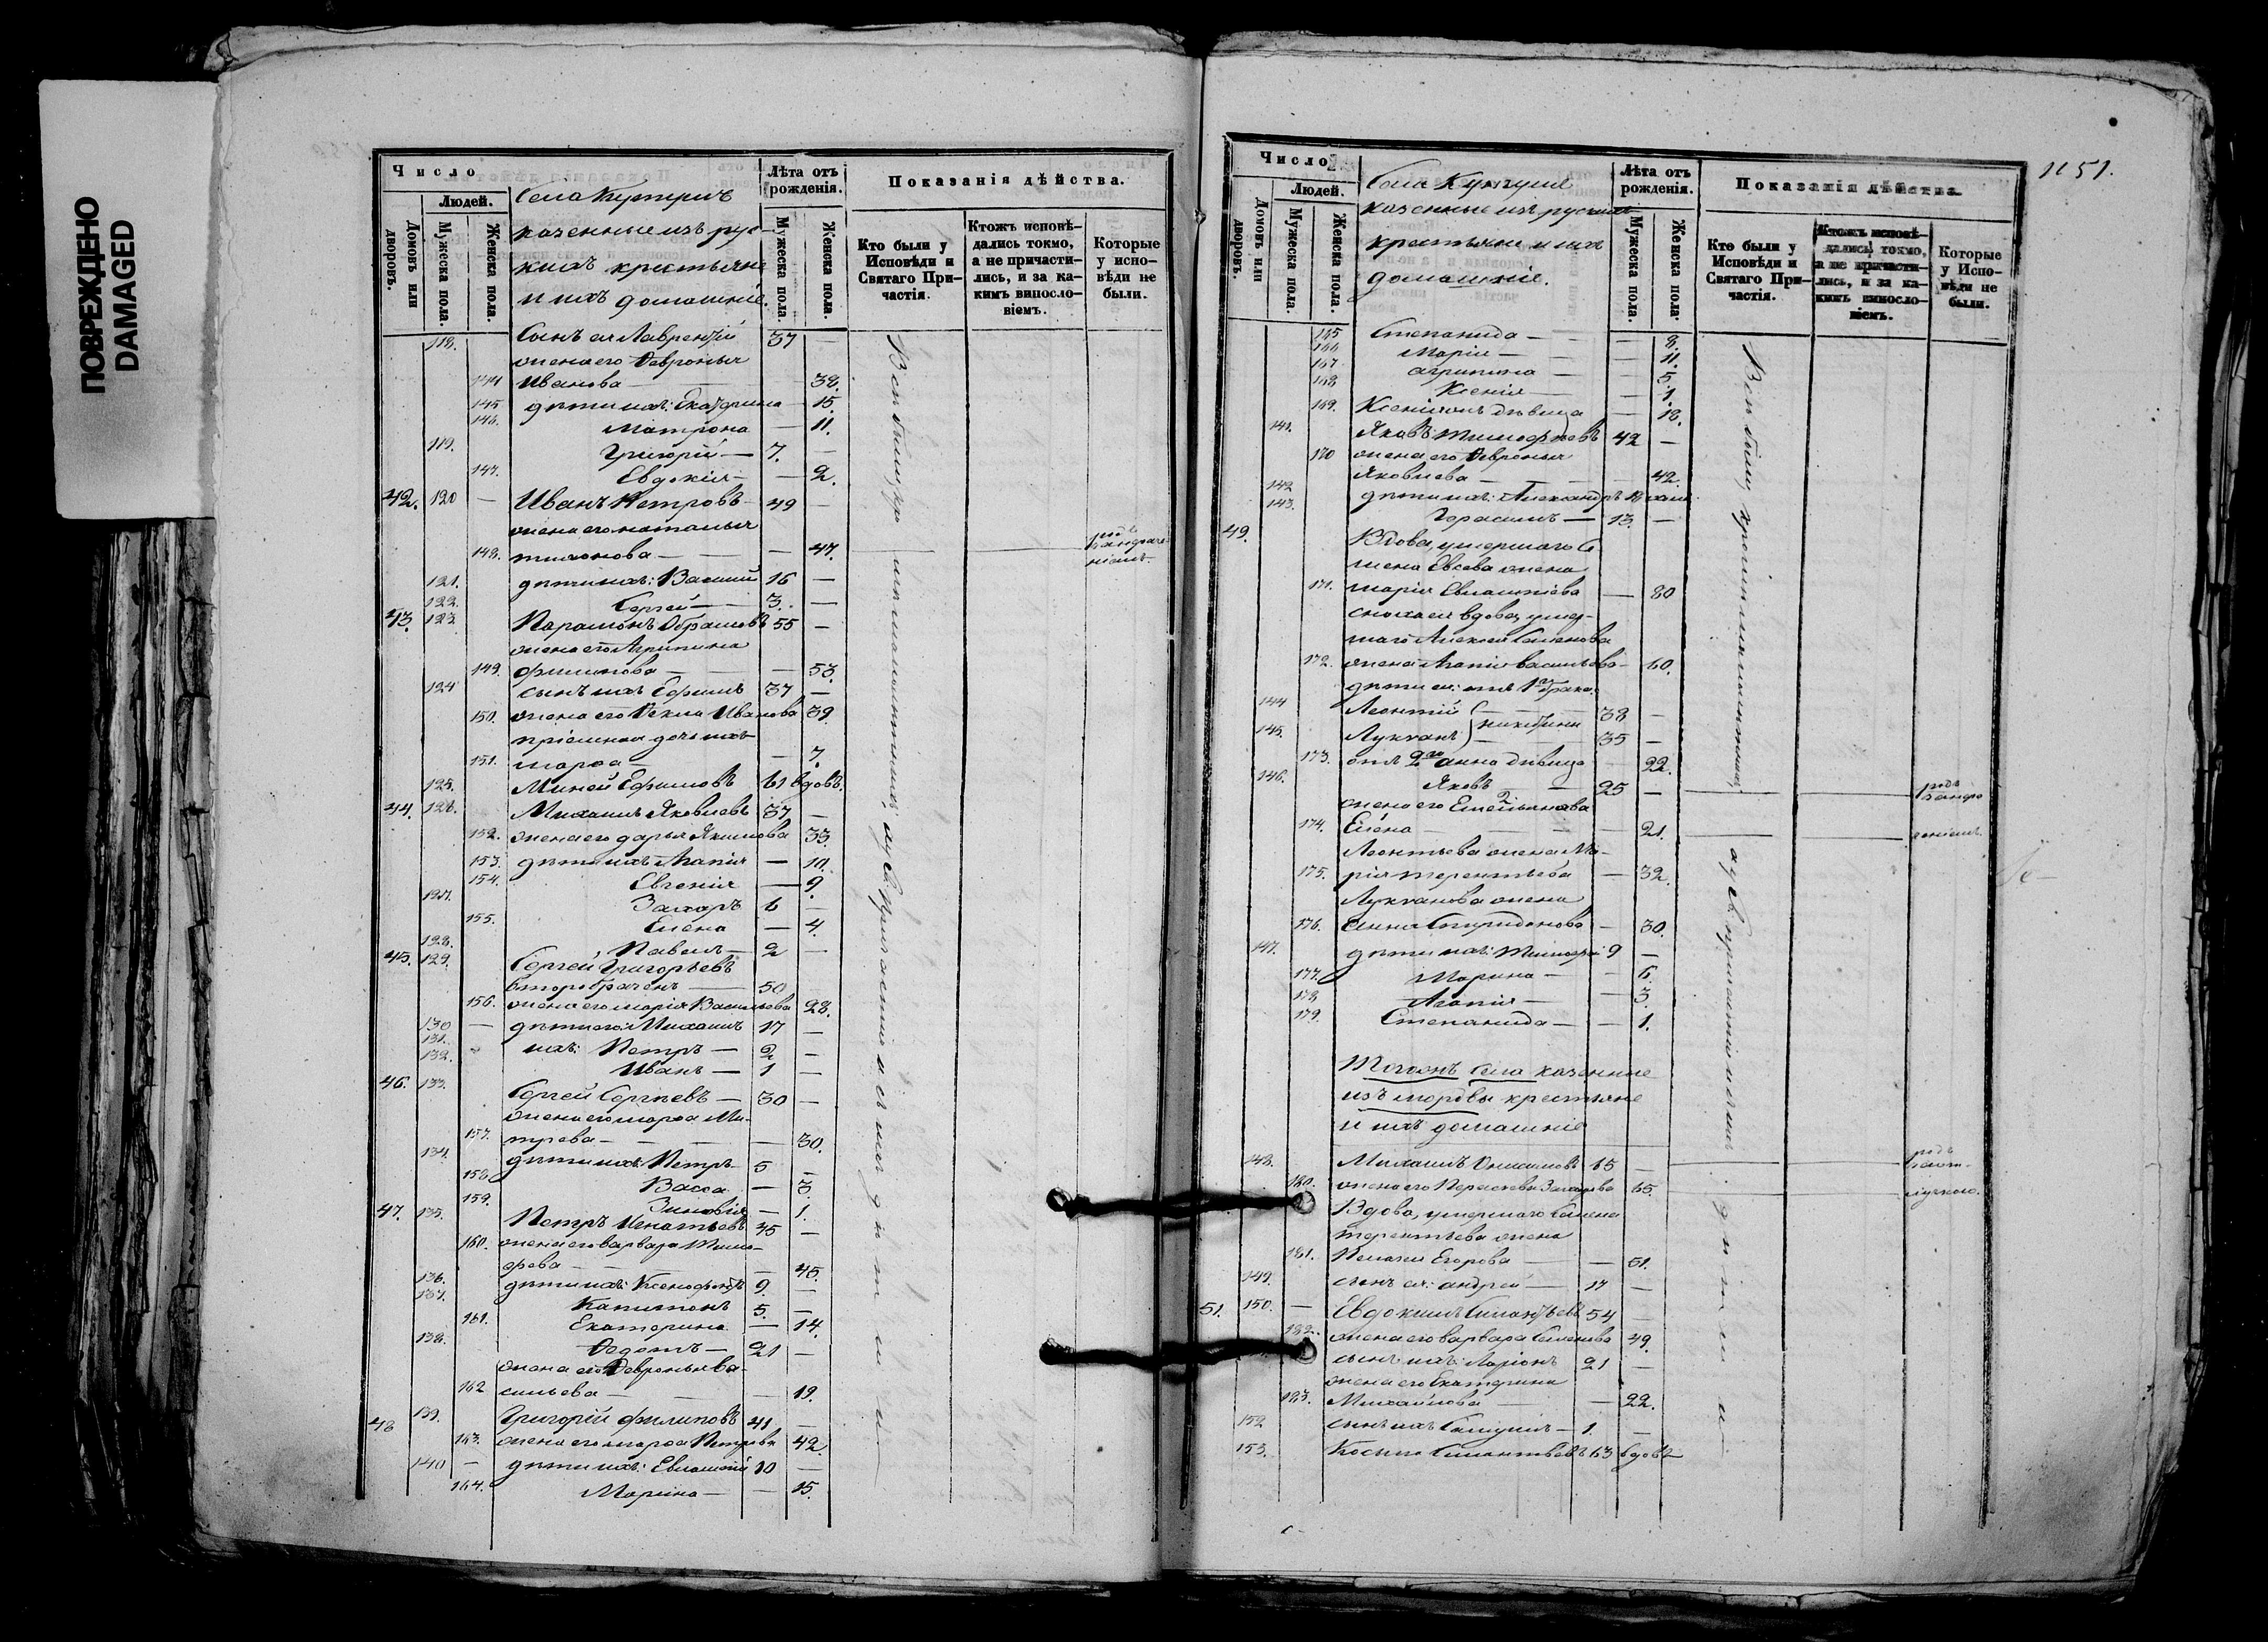 ПОВРЕЖДЕНО
DAMAGED
Число
Людей.
Домовъ или дворовъ.
Мужеска пола.
Женска пола.
казенные изъ рус-
кихъ крестьяне
и ихъ домашніе.
Лѣта отъ рожденія.
Мужеска пола.
Женска пола.
Показанія дѣйства.
Кто были у Исповѣди и Святаго При-частія.
Ктожъ исповѣ-дались токмо, а не причасти-лись, и за ка-кимъ виносло-віемъ.
Которые у испо-вѣди не были.
118. Сынъ ея Лаврентій 37 —
жена его Февронья
144 Иванова — — 38.
145 дѣти ихъ: Екатерина — 15.
146. Матрона — 11.
119. Григорій — 7. —
147. Евдокія — — 2.
42. 120 — Иванъ Петровъ 49 —
жена его Наталья
148. Тихонова — — 47.
121. дѣти ихъ: Василій 16 —
122. Сергѣй — 3. —
43. 123 Парамонъ Абрамовъ 55 —
жена его Агрипина
149. Филипова — — 53.
124 сынъ ихъ Ефимъ 37 —
150. жена его Фекла Иванова 39.
пріемная дочь ихъ
151. Марфа — — 7.
125. Миней Ефимовъ 61 вдовъ.
44. 126. Михаилъ Яковлевъ 37 —
152. жена его Дарья Якимова 33.
153. дѣти ихъ Агапія — 10.
154. Евгенія — 9.
127. Захаръ 6 —
155. Елена — 4.
128. Павелъ — 2 —
45. 129. Сергей Григорьевъ
второбраченъ — 50
156. жена его Марія Васильева 28.
130 — дѣти его: Михаилъ 17 —
131. ихъ: Петръ — 2 —
132. Иванъ — 1 —
46. 133. Сергей Сергѣевъ — 30 —
жена его Марфа Ми-
157. трева — — 30.
134. дѣти ихъ: Петръ — 5 —
158 Васса — 3.
159. Зиновія — 1.
47. 135. Петръ Игнатьевъ 45 —
160. жена его Варвара Тимо-
фева — — 45.
136. дѣти ихъ: Ксенофонтъ 9. —
137. Капитонъ 5. —
161. Екатерина — 14.
138. Федотъ — 21 —
жена его Февронья Ва-
162 сильева — — 19.
48 139. Григорій Филиповъ 41 —
163. жена его Марфа Петрова 42.
140 — дѣти ихъ: Евлампій 10 —
164. Марина — — 15.
1151.
Число
Людей.
Домовъ или дворовъ.
Мужеска пола
Женска пола.
казенные изъ рускихъ
крестьяне и ихъ
домашніе.
Лѣта отъ рожденія.
Мужеска пола.
Женска пола.
Показанія дѣйства.
Кто были у Исповѣди и Святаго При-частія.
Ктожъ исповѣ-дались токмо, а не причасти-лись, и за ка-кимъ винослo-віемъ.
Которые у Испо-вѣди не были.
165 Степанида — — 8.
166 Марія — — 11.
167 Агрипина — — 5.
168 Ксенія — — 1.
169. дѣвица — 18.
141. Яковъ Тимофѣевъ 42 —
170 жена его Февронья
Яковлева — — 42.
142 дѣти ихъ: Александръ
143. Герасимъ — 13. —
49. Вдова, умершаго Се
мена жена
171. Марія Евлампіева — 80
сноха ея вдова, умер-
шаго Алексея Семенова
172. жена Агапія Васильева — 60.
дѣти ея: отъ 1го брака:
144 Леонтій 38 —
145. Лукьянъ 35 —
173. отъ 2го Анна дѣвица — 22.
146. Яковъ — 25 —
жена его Емельянова
174. Елена — — 21.
Леонтьева жена Ма-
175. рія Терентьева — 32.
Лукьянова жена
176. Анна Спиридонова — 30.
147. дѣти ихъ: Тимофей 9 —
177. Марина — — 6.
178 Агапія — — 3.
179. Степанида — — 1.
Тогожъ села казенные
изъ мордвы крестьяне
и ихъ домашніе
148. Михаилъ 65 —
180. жена его Параскева Захарова 65.
Вдова, умершаго Семена
Терентьева жена
181. Пелагея Егорова — — 51.
149. сынъ ея: Андрей — 17 —
51. 150. — Евдокимъ 54 —
182. жена его Варвара Семенова 49.
сынъ ихъ: Ларіонъ 21 —
жена его Екатерина
183. Михайлова — — 22.
152 сынъ ихъ — 1. —
153. Косьма 63 вдовъ